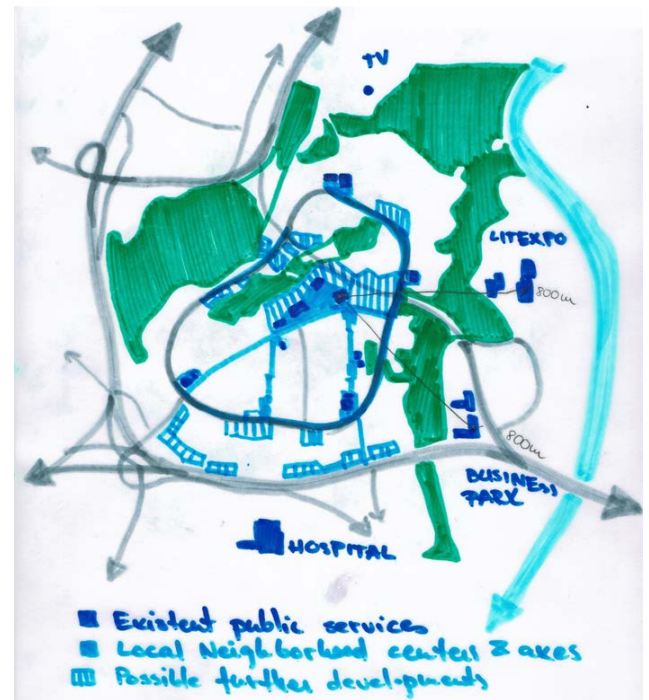 TV
LITEXPO
800m
800m
BUSINESS
PARK
HOSPITAL
Existent public services
Local Neighborhood centers & axes
Possible further developments